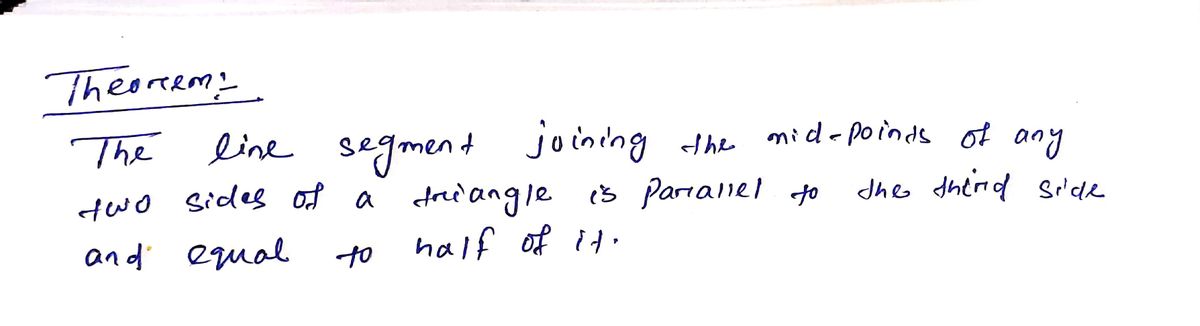 Theorem:-
The line segment joining the mid-points of any
two sides of a triangle is parallel to the third side
and equal to half of it.